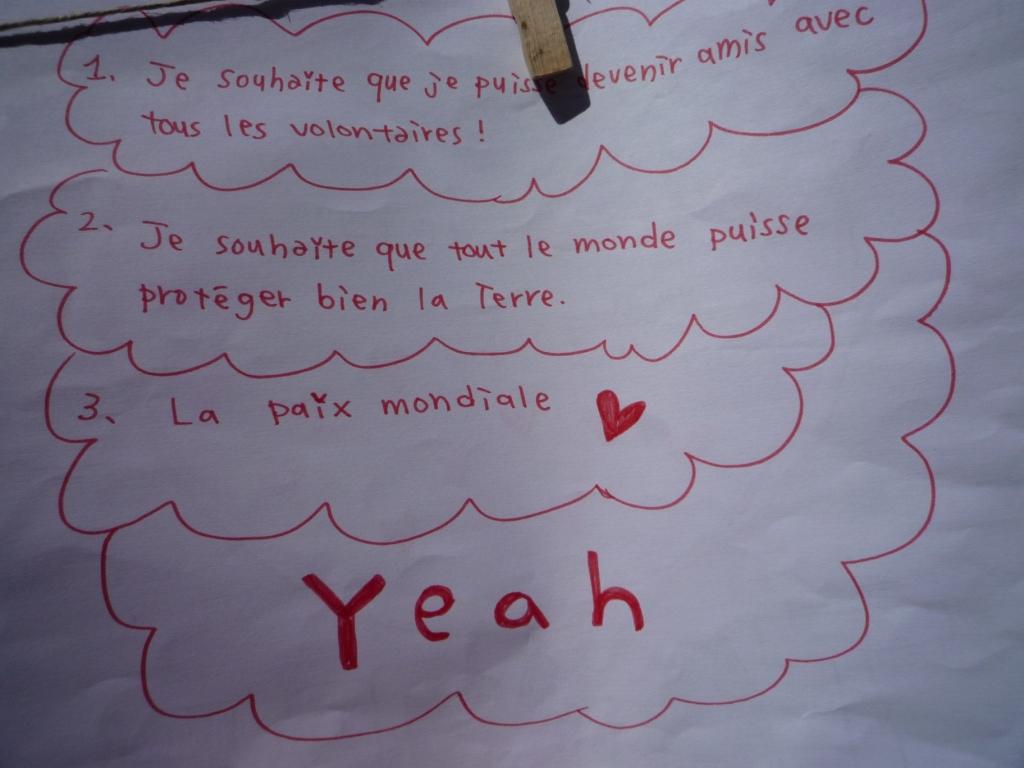 1. Je souhaite que je puisse devenir amis avec
tous les volontaires !
2. Je souhaite que tout le monde puisse
protéger bien la Terre.
3. La paix mondiale
Yeah